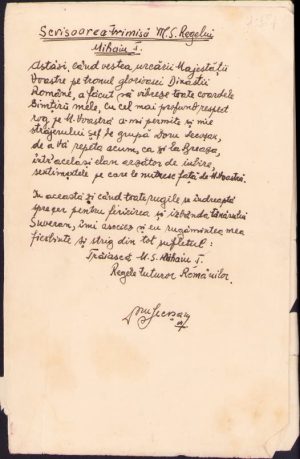 Scrisoarea trimisă M.S. Regelui
Mihaiu I.
Astăzi, când vestea urcării Majestății
Voastre pe tronul glorioasei Dinastii
Române, a făcut să vibreze toate coardele
Simțirii mele, cu cel mai profund respect
rog pe M. Voastră a-mi permite și mie
străjerului șef de grupă Doru
de a Vă repeta acum, ca și la Breaza,
într'acelaș elan arzător de iubire,
sentimentele pe care le nutresc față de M. Voastră.
În această zi când toate rugile se îndreaptă
spre cer pentru fericirea și izbânda tânărului
Suveran, îmi asociez și eu rugămintea mea
fierbinte și strig din tot sufletul:
Trăiască M.S. Mihaiu I.
Regele tuturor Românilor.